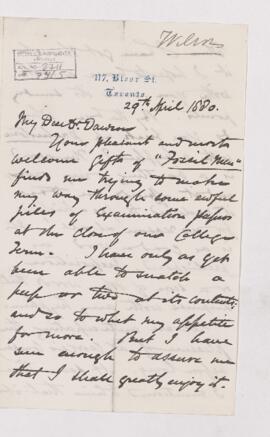 Wilson
117, Bloor St.
Toronto
29th April 1880.
My Dear Dr. Dawson
Your pleasant and most
welcome gift of "Fossil Men"
finds me trying to make
my way through some awful
piles of examination papers
at the close of our College
Term. I have only as yet
been able to snatch a
peep or two at its contents,
and so to whet my appetite
for more. But I have
seen enough to assure me
that I shall greatly enjoy it.